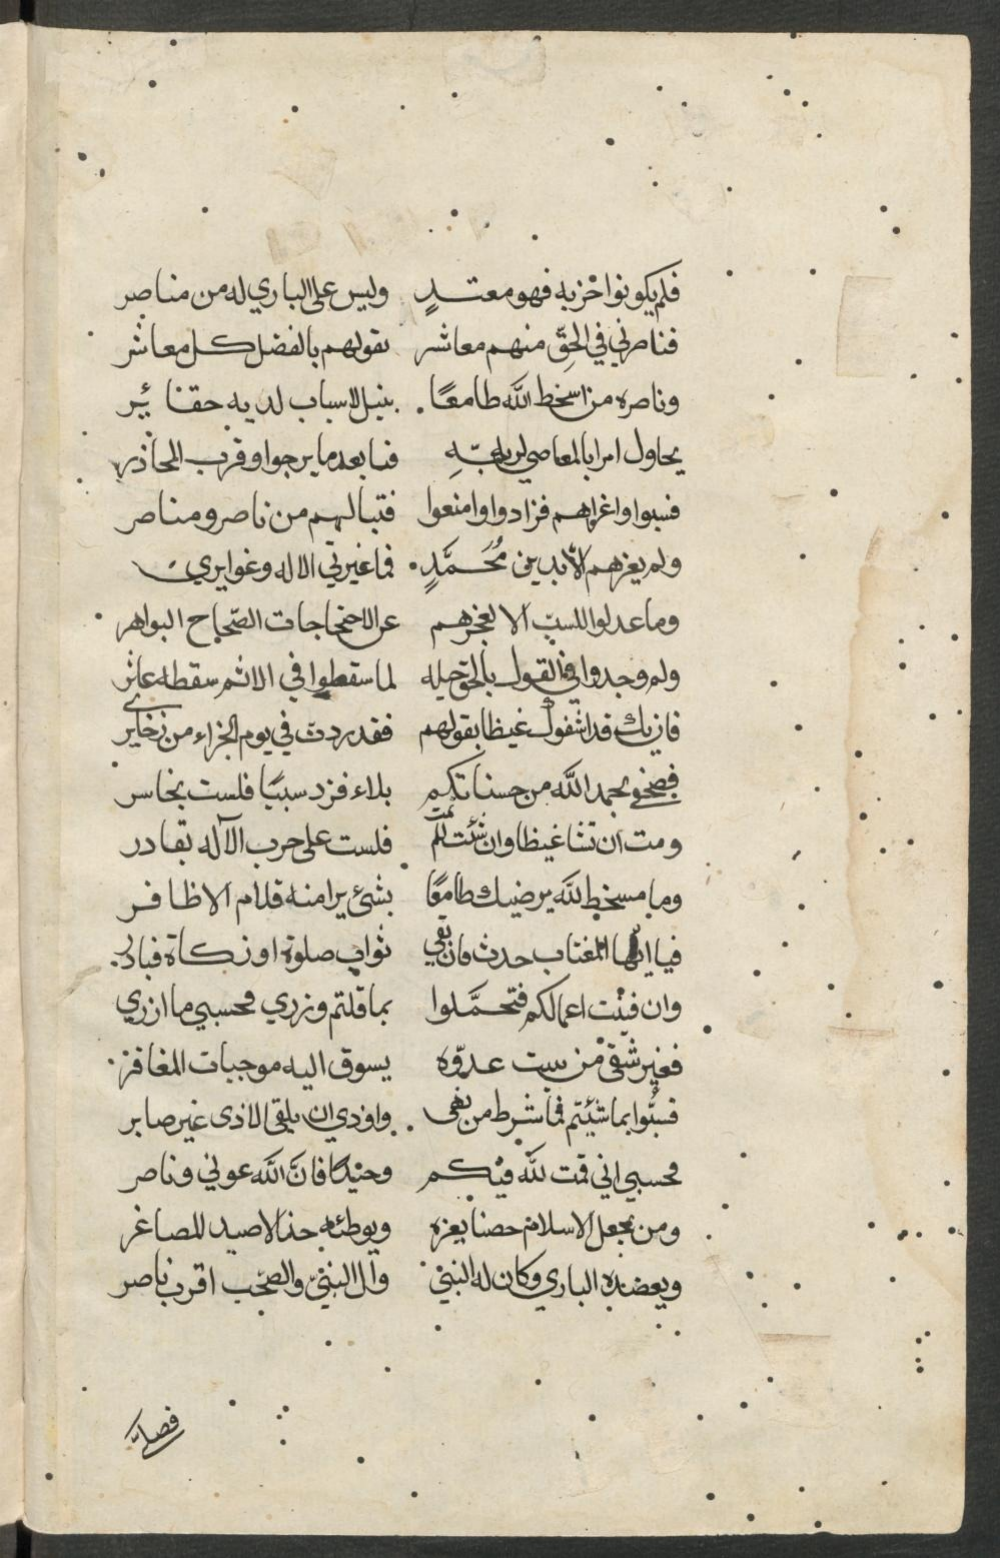 فلم يكونوا حزبه فهو معتدٍ وليس على الباري له من مناصر
فناصرني في الحقّ منهم معاشر بقولهم بالفضل كل معاشر
وناصره من اسخط الله طامعًا بنيل الاسباب لديه حقائر
يحاول امرا بالمعاصي لربه فيا بعد ما يرجوا وقرب المحاذر
فسبوا واغراهم فزادوا وامنعوا فتبا لهم من ناصر ومناصر
ولم يغرهم الا بدين مُحَمَّدٍ فما غيرتي الا له وغوايري
وما عدلوا للسبّ الا لعجزهم عن الاحتجاجات الصّحاح البواهر
ولم وجدوا في القول بالحق حيله لما سقطوا في الاثم سقطه عاثر
فان يك قد اشفوك غيظا بقولهم فقد زدت في يوم الجزاء من ذخايري
فصحفي بحمد الله من حسناتكم بلاء فزد سبّا فلست بخاسر
ومت ان تشا غيظا وان شئت لم تمت فلست على حرب الآله بقادر
وما مسخط لله يرضيك طامعًا بشئ يرا منه قلام الاظافر
فيا ايها المغتاب حدث فان بقي ثواب صلوة او زكاة فبادر
وان فنيت اعمالكم فتحمَّلوا بما قلتم وزري فحسبي ما ازري
فغير شقي من سبت عدوّه يسوق اليه موجبات المغافر
فسبُّوا بما شئتم فما شرط من نهى واوذي ان يلقى الاذى غير صابر
فحسبي اني قمت لله فيكم وحيدًا فانَّ الله عوني وناصر
ومن يجعل الاسلام حصنا يعزه ويوطئه خد الاصيد للمصاغر
ويعضده الباري وكان له النبيّ وآل النبيّ والصّحب اقرب ناصر
فصل